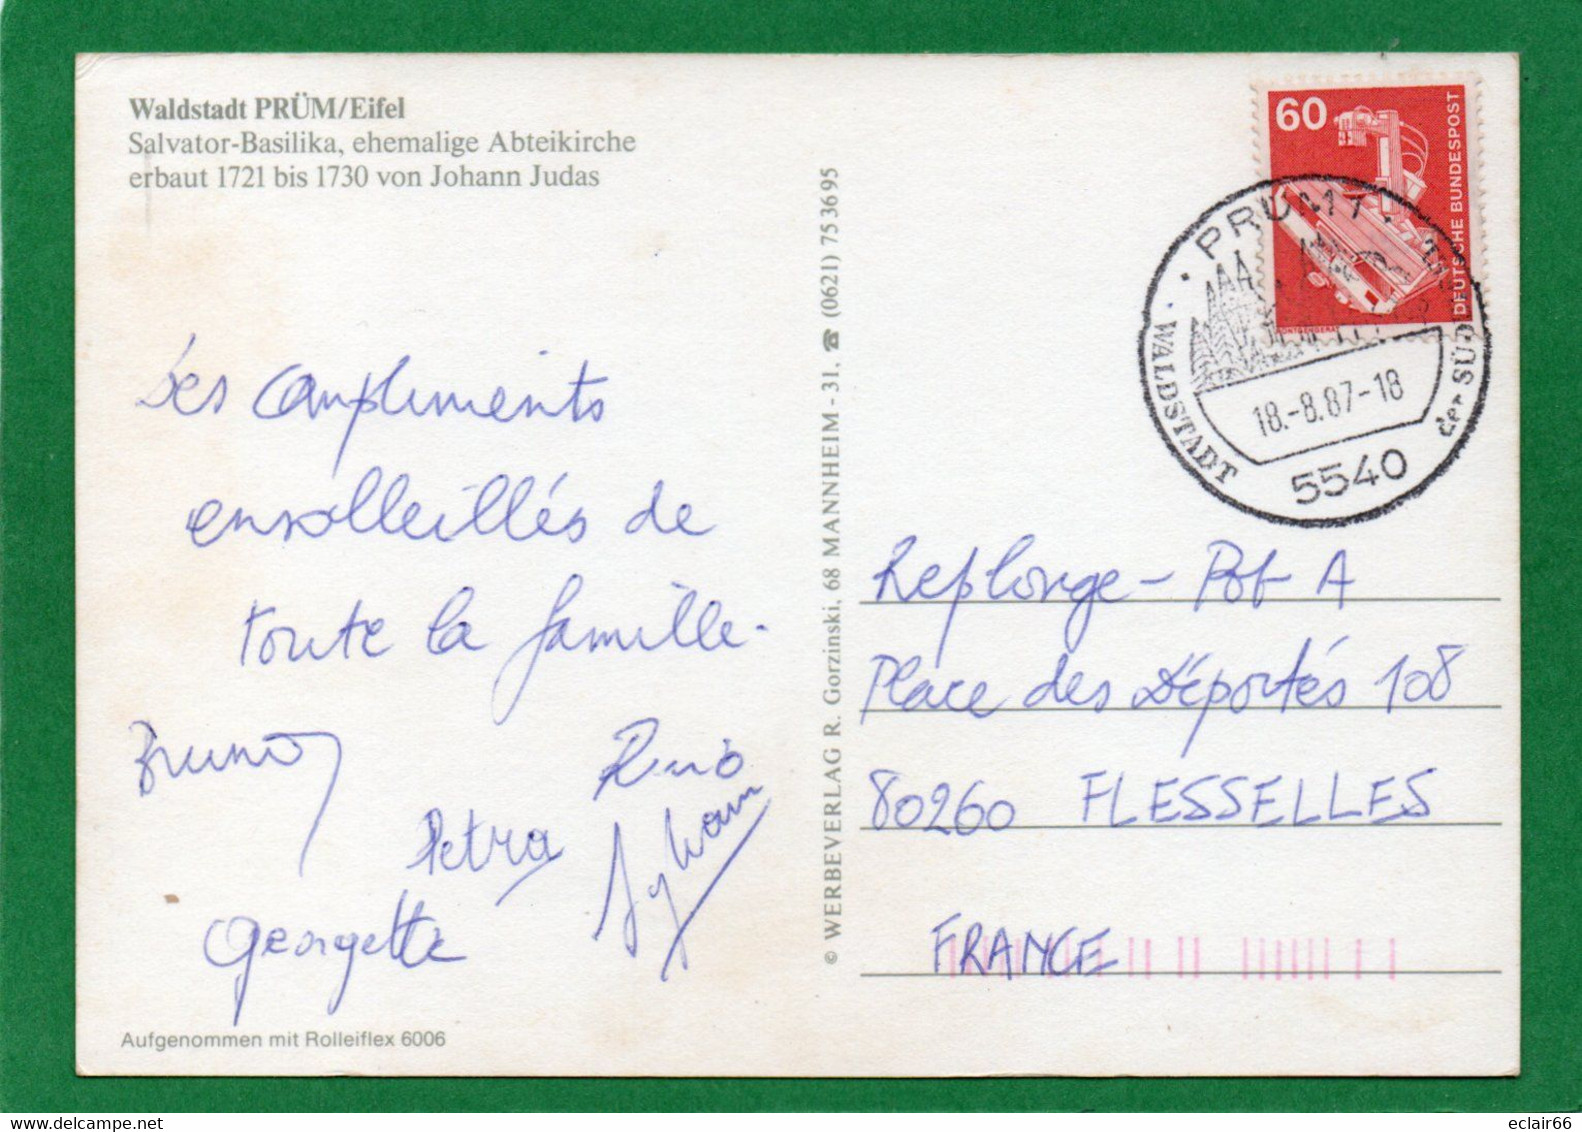 Waldstadt PRÜM/Eifel
Salvator-Basilika, ehemalige Abteikirche
erbaut 1721 bis 1730 von Johann Judas
60
DEUTSCHE BUNDESPOST
PRÜM 1
WALDSTADT
der SÜD
18.-8.87-18
5540
Les Compliments
ensolleillés de
toute la famille.
Bruno
Petra
Sylvain
Georgette
Aufgenommen mit Rolleiflex 6006
© WERBEVERLAG R. Gorzinski, 68 MANNHEIM - 31, ☎ (0621) 75 36 95
Replonge - Bât A
Place des Déportés 108
80260 FLESSELLES
FRANCE
eclair66